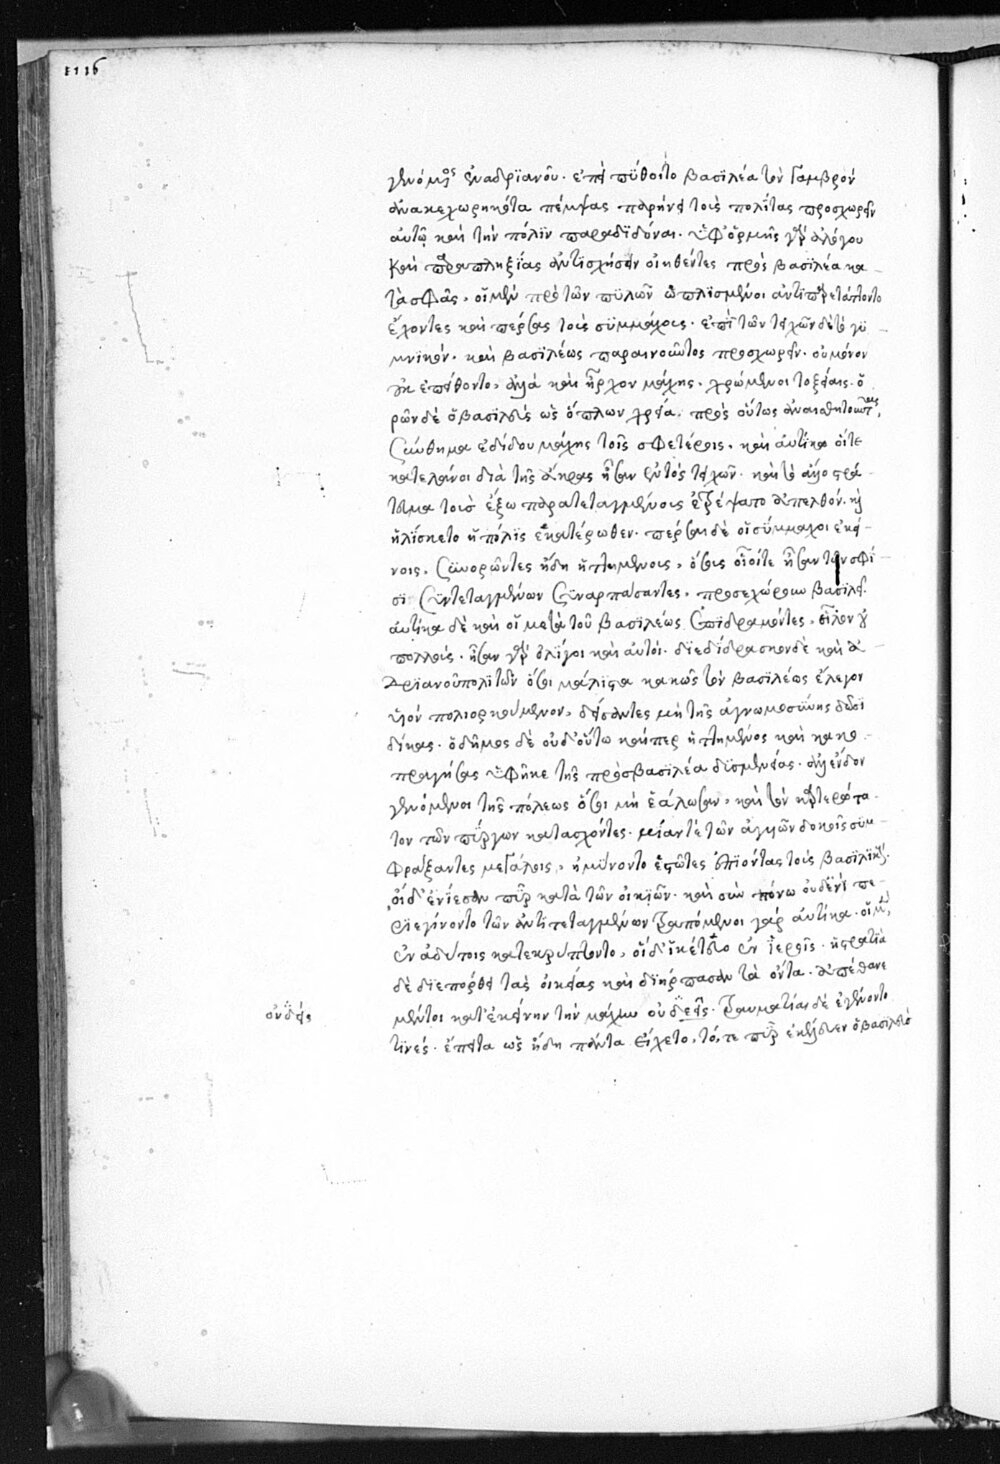 1116
γενόμενος ἐν ἀδριανοῦ. ἐπεὶ πύθοιτο βασιλέα τὸν γαμβρὸν
ἀνακεχωρηκότα πέμψας παρῄνει τοῖς πολίταις προσχωρεῖν
αὐτῷ καὶ τὴν πόλιν παραδιδόναι. ὑφ' ὁρμῆς γὰρ ἀλόγου
καὶ παραπληξίας ἀντισχήσειν οἰηθέντες πρὸς βασιλέα κα
τὰ σφᾶς, οἱ μὲν πρὸ τῶν πυλῶν ὡπλισμένοι ἀντιπαρετάττοντο
ἔχοντες καὶ πέρσας τοὺς συμμάχους. ἐπὶ τῶν τειχῶν δὲ τὸ γυ
μνικόν. καὶ βασιλέως παραινοῦντος προσχωρεῖν. οὐ μόνον
οὐκ ἐπείθοντο, ἀλλὰ καὶ ἦρχον μάχης, χρώμενοι τοξείαις. ὁ
ρῶν δὲ ὁ βασιλεὺς ὡς ὅπλων χρεία, πρὸς οὕτως ἀναισθητοῦντας,
σύνθημα ἐδίδου μάχης τοῖς σφετέροις, καὶ αὐτίκα οἵ τε
κατελάνοι διὰ τῆς ἄκρας ἦσαν ἐντὸς τειχῶν. καὶ τὸ ἄλλο στρά
τευμα τοὺς ἔξω παρατεταγμένους ἐτρέψαντο ἀπελθόν. καὶ
ἡλίσκετο ἡ πόλις ἑκατέρωθεν. πέρσαι δὲ οἱ σύμμαχοι ἐκεί
νοις, συνορῶντες ἤδη ἡττημένους, ὅσοις οἷοί τε ἦσαν τῶν σφί
σι συντεταγμένων συναρπάσαντες, προσεχώρουν βασιλεῖ.
αὐτίκα δὲ καὶ οἱ μετὰ τοῦ βασιλέως ἐπιδραμόντες, εἷλον οὐ
πολλούς. ἦσαν γὰρ ὀλίγοι καὶ αὐτοί. διεδίδρασκον δὲ καὶ ἀ
δριανουπολιτῶν ὅσοι μάλιστα κακῶς τὸν βασιλέως ἔλεγον
υἱὸν πολιορκούμενον, δείσαντες μὴ τῆς ἀγνωμοσύνης δῶσι
δίκας. ὁ δῆμος δὲ οὐδ' οὕτω καίπερ ἡττημένος καὶ κακο
πραγήσας ὑφῆκε τῆς πρὸς βασιλέα δυσμενείας. ἀλλ' ἔνδον
γενόμενοι τῆς πόλεως ὅσοι μὴ ἑάλωσαν, καὶ τὸν καρτερώτα
τον τῶν πύργων κατασχόντες. μίαν τὲ τῶν ἀγυιῶν δοκοῖς συμ
φράξαντες μεγάλοις, ἠμύνοντο ἑστῶτες ἐπιόντας τοὺς βασιλικούς.
οἱ δ' ἐνίεσαν πῦρ κατὰ τῶν οἰκιῶν. καὶ σὺν πόνω οὐδενὶ πε
ριεγίνοντο τῶν ἀντιτεταγμένων τραπόμενοι γὰρ αὐτίκα. οἱ μὲν,
ἐν ἀδύτοις κατεκρύπτοντο, οἱ δ' ἱκέτευον ἐν ἱεροῖς. ἡ στρατιὰ
δὲ διεπόρθει τὰς οἰκίας καὶ διήρπασαν τὰ ὄντα. ἀπέθανε
μέντοι κατ' ἐκείνην τὴν μάχην οὐδεὶς. τραυματίαι δὲ ἐγένοντο
οὐδεὶς
τινές. ἔπειτα ὡς ἤδη πάντα εἴχετο, τότε πῦρ ἐκέλευεν ὁ βασιλεὺς